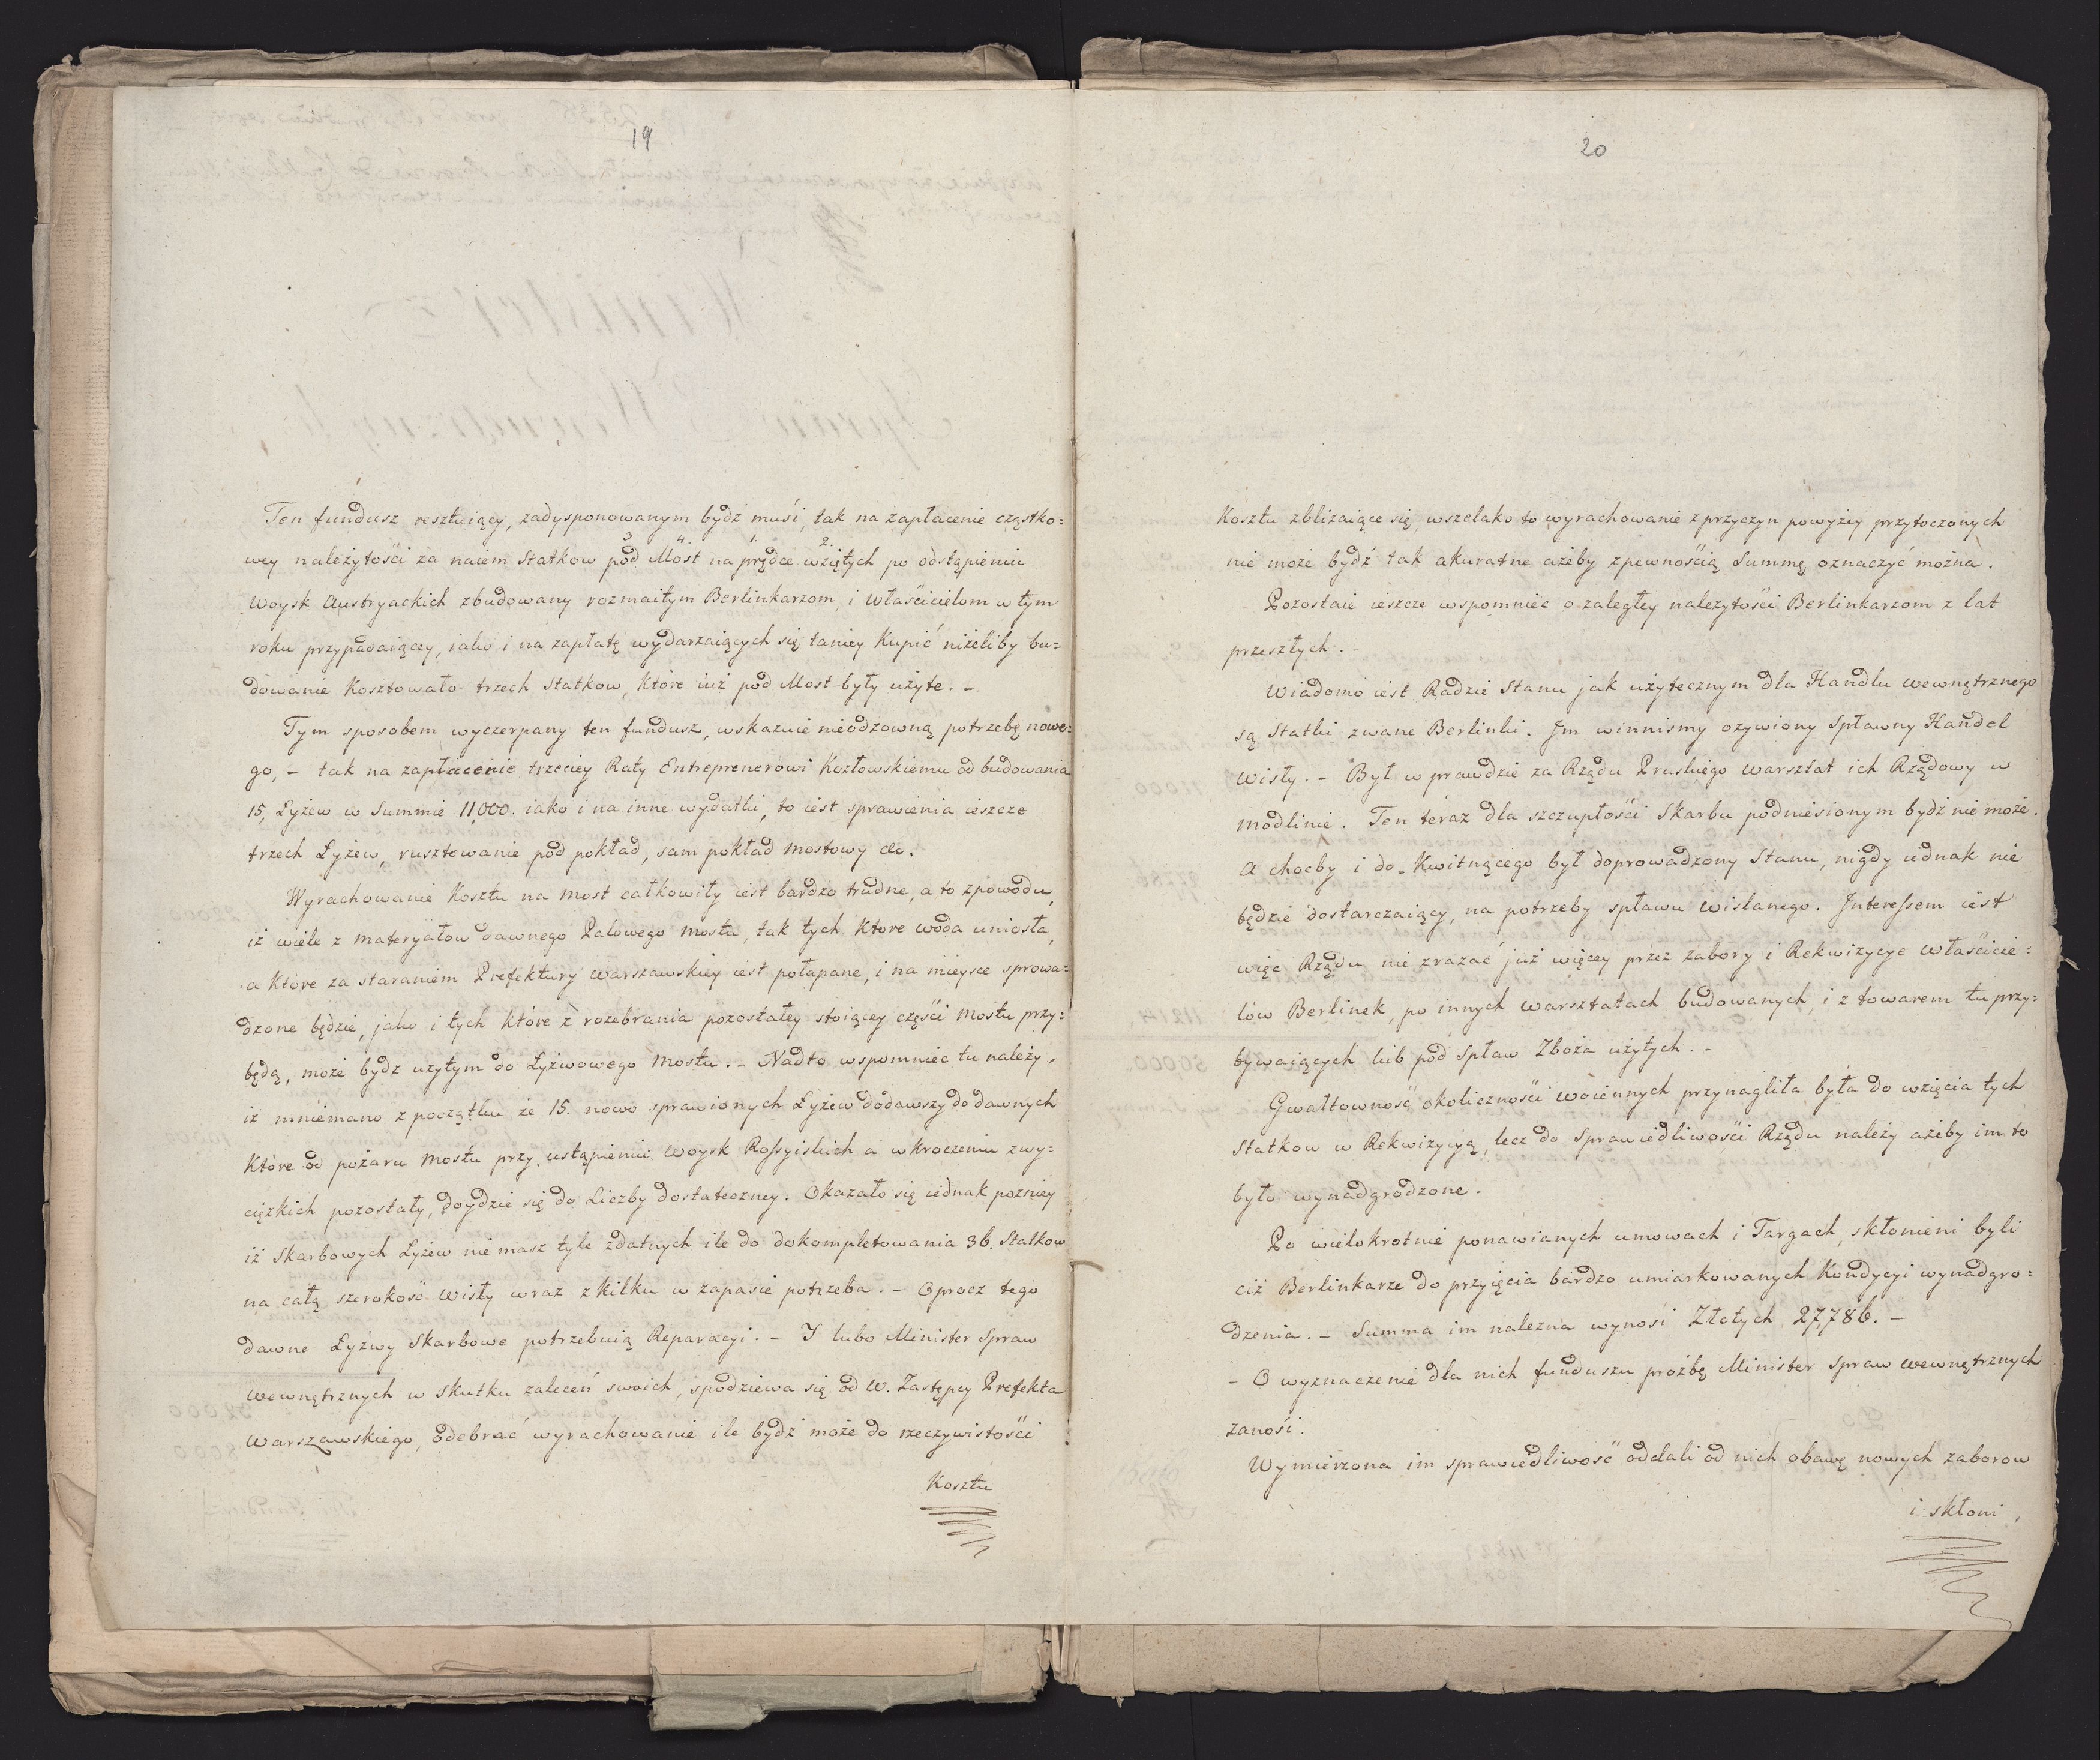 19
Ten fundusz resztuiący, zadysponowanym bydź musi, tak na zapłacenie cząstko=
wey należytości za naiem Statkow pod Most na prędce wziętych po odstąpieniu
3 4. 1. 2.
Woysk Austryackich zbudowany rozmaitym Berlinkarzom, i właścicielom w tym
roku przypadaiącey, iako i na zapłatę wydarzaiących się taniey Kupić niżeliby bu=
dowanie Kosztowało trzech Statkow, które iuż pod Most były użyte. –
Tym sposobem wyczerpany ten fundusz, wskazuie nieodzowną potrzebę nowe=
go, – tak na zapłacenie trzeciey Raty Entreprenerowi Kozłowskiemu od budowania
15, Łyżew w Summie 11,000. iako i na inne wydatki, to iest sprawienia ieszcze
trzech Łyżew, rusztowanie pod pokład, sam pokład mostowy &c.
Wyrachowanie Kosztu na most całkowity iest bardzo trudne, a to zpowodu,
iż wiele z materyałow dawnego Palowego mostu, tak tych Ktore woda uniosła,
a Które za staraniem Prefektury Warszawskiey iest połapane, i na mieysce sprowa=
dzone będzie, jako i tych które z rozebrania pozostałey stoiącey części mostu przy=
będą, może bydz użytym do Łyżwowego mostu. – Nadto wspomniec tu należy,
iż mniemano z początku że 15. nowo sprawionych Łyżew dodawszy do dawnych
Które od pożaru mostu przy ustąpieniu Woysk Rossyiskich a wkroczeniu zwy=
cięzkich pozostały, doydzie się do Liczby dostateczney. Okazało się iednak pozniey
iż Skarbowych Łyżew nie masz tyle zdatnych ile do dokompletowania 36. Statkow
na całą szerokość Wisły wraz z kilku w zapasie potrzeba. – Oprocz tego
dawne Łyżwy Skarbowe potrzebuią Reparacyi. – I lubo Minister Spraw
Wewnętrznych w skutku zaleceń swoich, spodziewa się od W. Zastępcy Prefekta
Warszawskiego, odebrać wyrachowanie ile bydź może do rzeczywistości
Kosztu
20
Kosztu zbliżaiące się, wszelako to wyrachowanie z przyczyn powyżey przytoczonych
nie może bydź tak akuratne ażeby zpewnością Summę oznaczyć można.
Pozostaie ieszcze wspomniec o zaległey należytości Berlinkarzom z lat
przeszłych. –
Wiadomo iest Radzie Stanu jak użytecznym dla Handlu wewnętrznego
są Statki zwane Berlinki. Im winnismy ożywiony Spławny Handel
Wisły. – Był w prawdzie za Rządu Pruskiego warsztat ich Rządowy w
Modlinie. Ten teraz dla szczupłości Skarbu podniesionym bydź nie może.
A chocby i do Kwitnącego był doprowadzony Stanu, nigdy iednak nie
będzie dostarczaiący, na potrzeby spławu wislanego. Interessem iest
więc Rządu nie zrażać już więcey przez zabory i Rekwizycye Właścicie=
lów Berlinek, po innych warsztatach budowanych, i z towarem tu przy=
bywaiących lub pod Spław Zboża użytych. –
Gwałtowność okoliczności woiennych przynagliła była do wzięcia tych
Statkow w Rekwizycyą, lecz do Sprawiedliwości Rządu należy ażeby im to
było wynadgrodzone.
Po wielokrotnie ponawianych umowach i Targach, skłonieni byli
ciż Berlinkarze do przyięcia bardzo umiarkowanych Kondycyi wynadgro=
dzenia. – Summa im należna wynosi Złotych 27,786. –
– O wyznaczenie dla nich funduszu proźbę Minister Spraw Wewnętrznych
zanosi.
Wymierzona im sprawiedliwość oddali od nich obawę nowych zaborow
i skłoni,